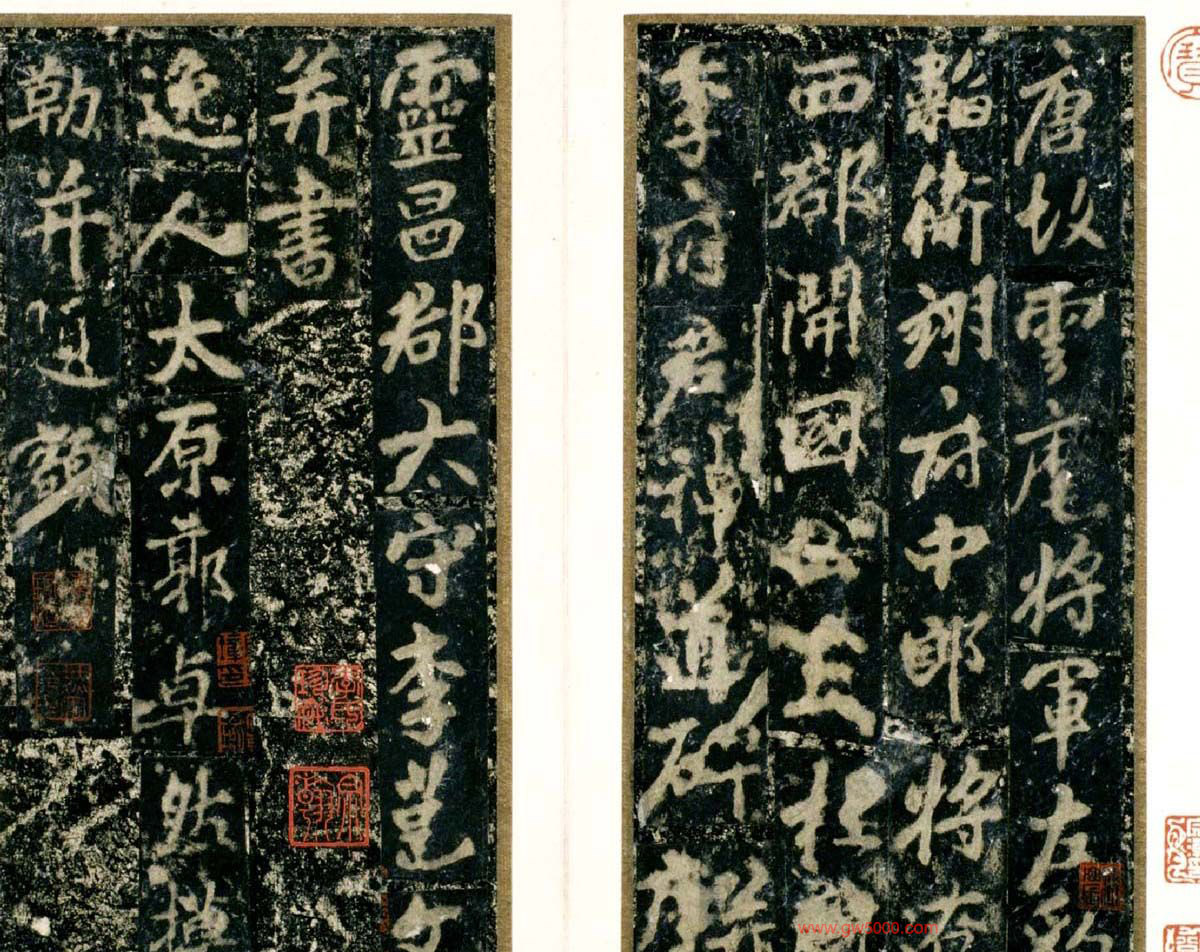 唐故雲麾將軍左豹
韜衛翊府中郎將遼
西郡開國公上柱國
李府君神道碑
靈昌郡太守李邕文
并書
逸人太原郭卓然摸
勒并題額
www.gw5009.com